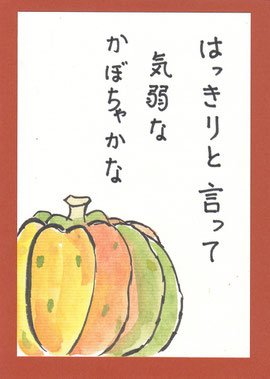 はっきりと言って
気弱な
かぼちゃかな